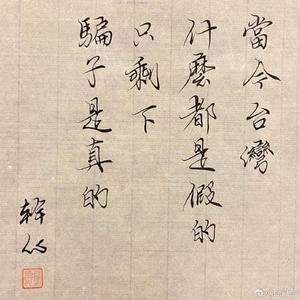 當今台灣
什麼都是假的
只剩下
騙子是真的